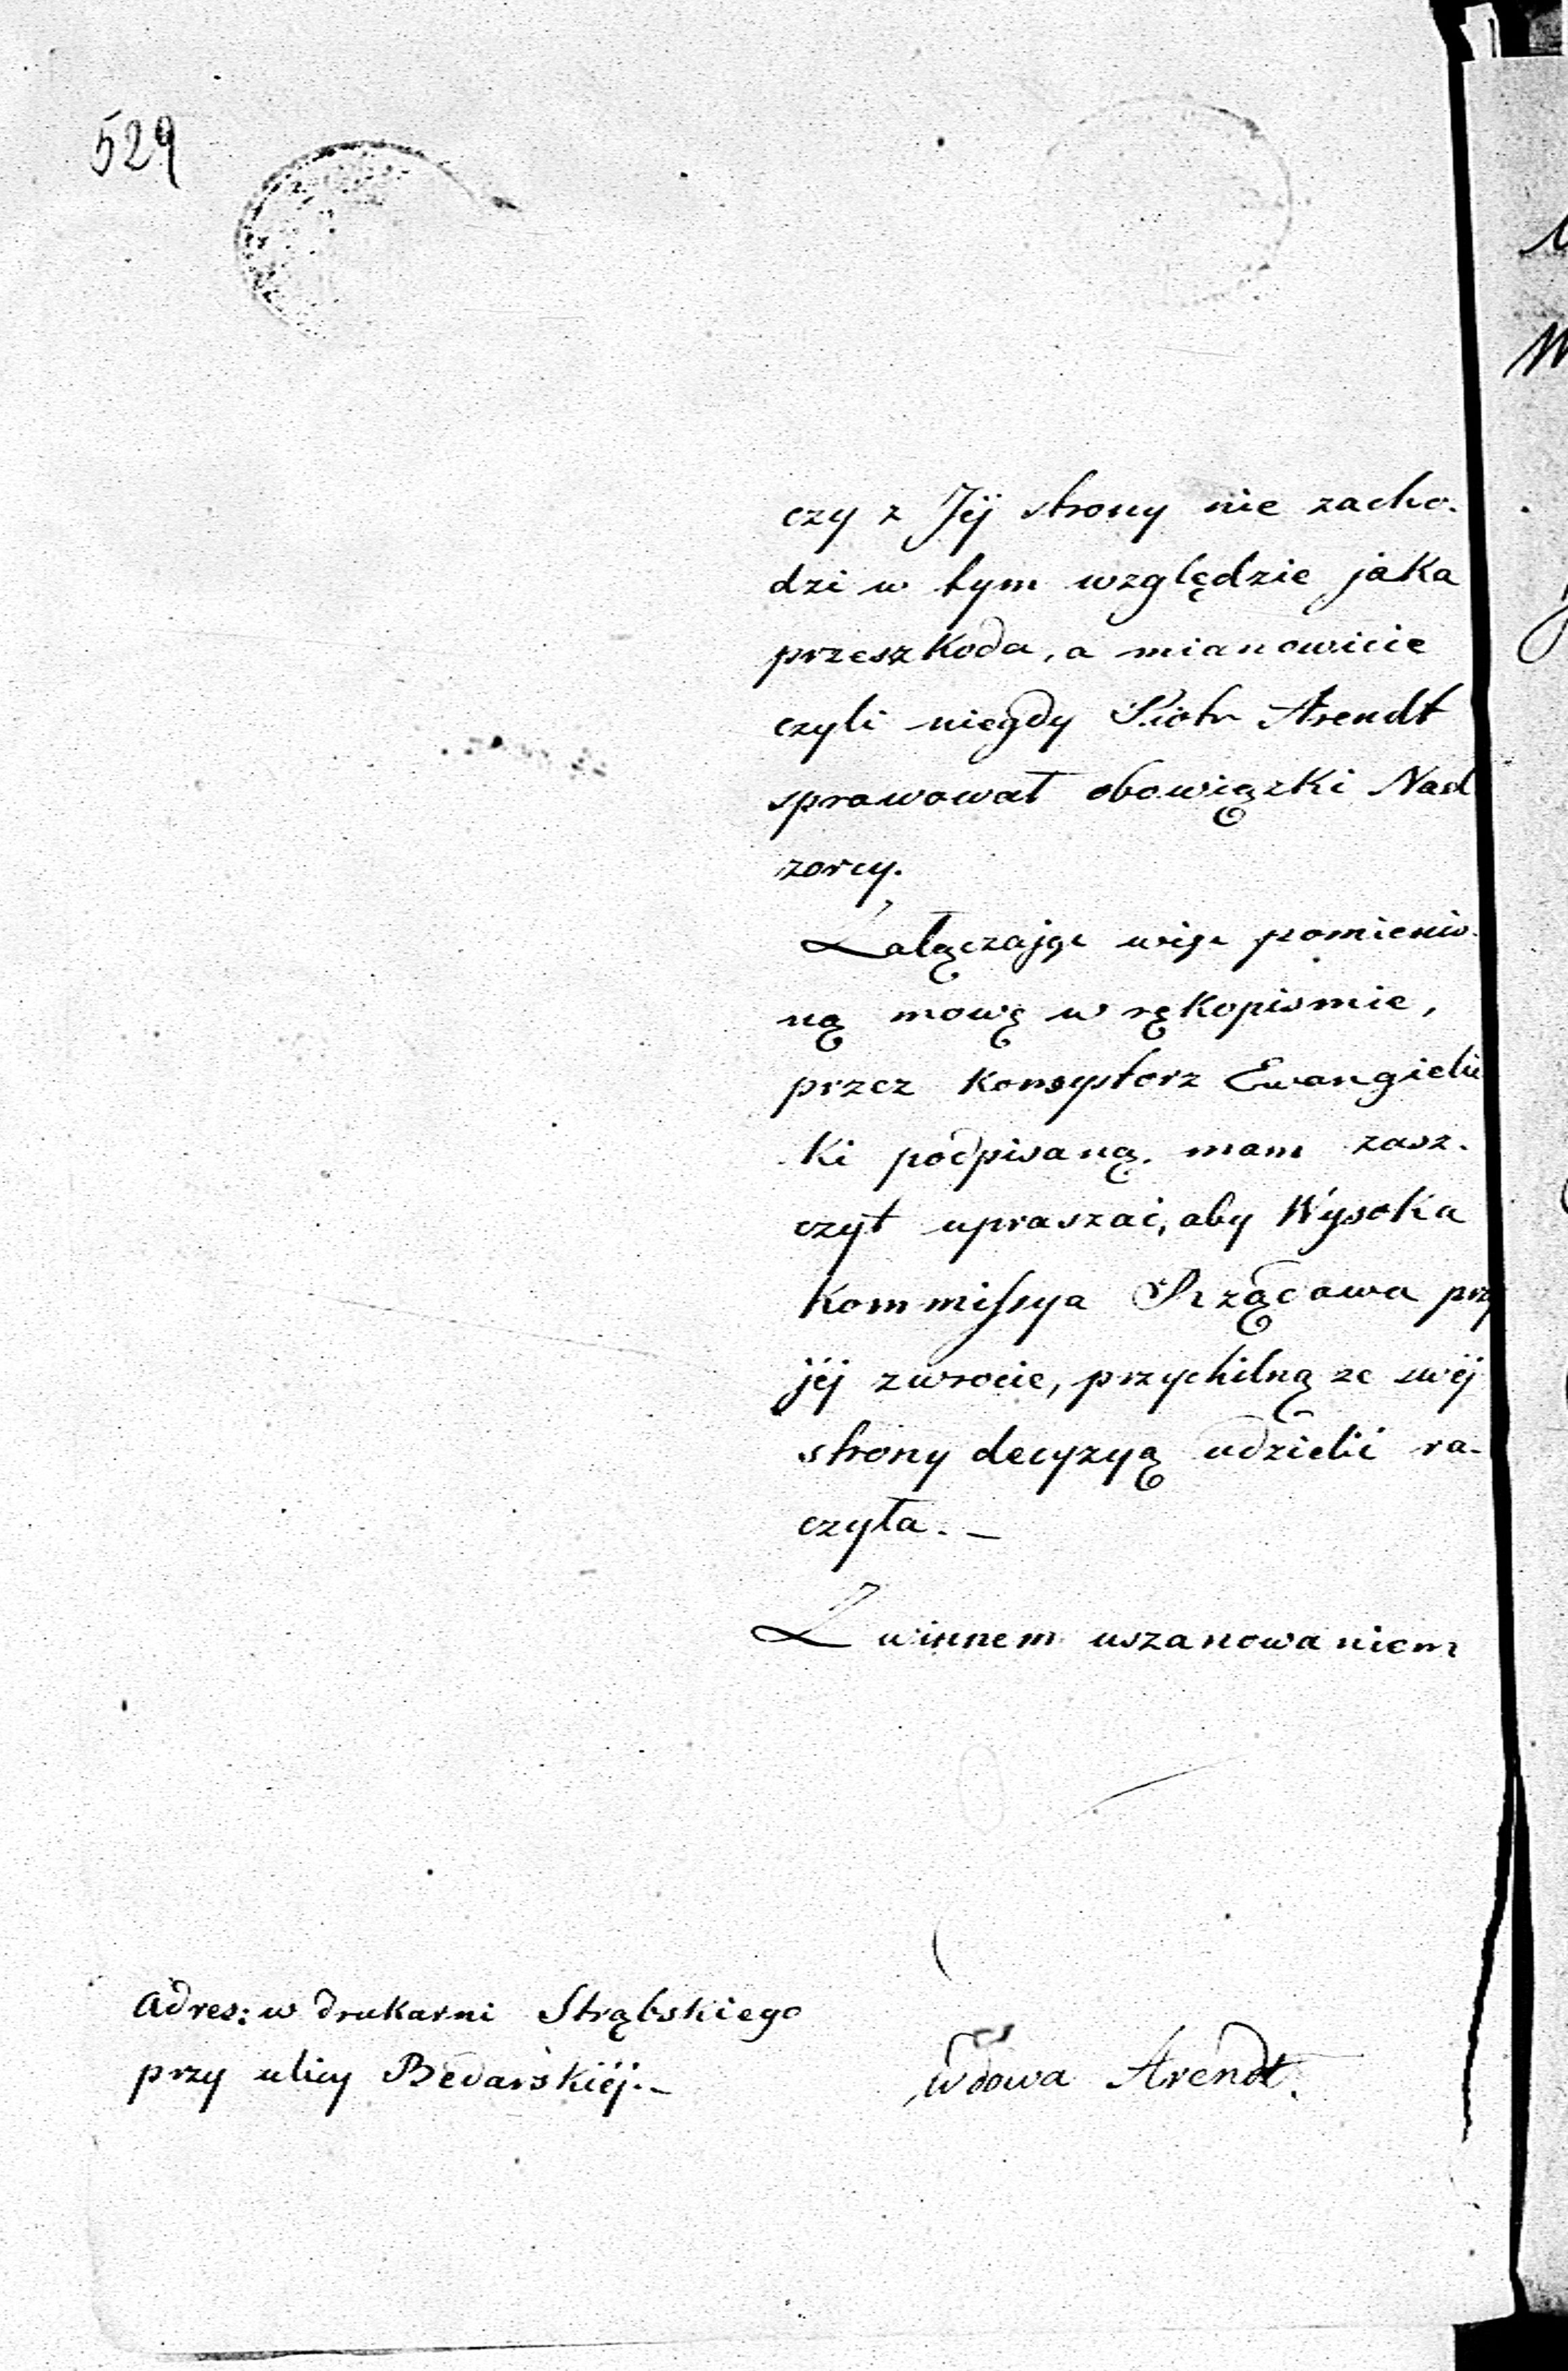 529
czy z Jéj strony nie zacho-
dzi w tym względzie jaka
przeszkoda, a mianowicie
czyli niegdy Piotr Arendt
sprawował obowiązki Nad
zorcy.
Załączając więc pomienio-
ną mowę w rękopismie,
przez Konsystorz Ewangielic
ki podpisaną. mam zasz-
czyt upraszać, aby Wysoka
Kommissya Rządowa przy
jéj zwrocie, przychilną ze swéj
strony decyzyą udzielić ra-
czyła. —
Z winnem uszanowaniem
Adres: w drukarni Strąbskiego
przy ulicy Bednarskiéj. —
Wdowa Arendt.